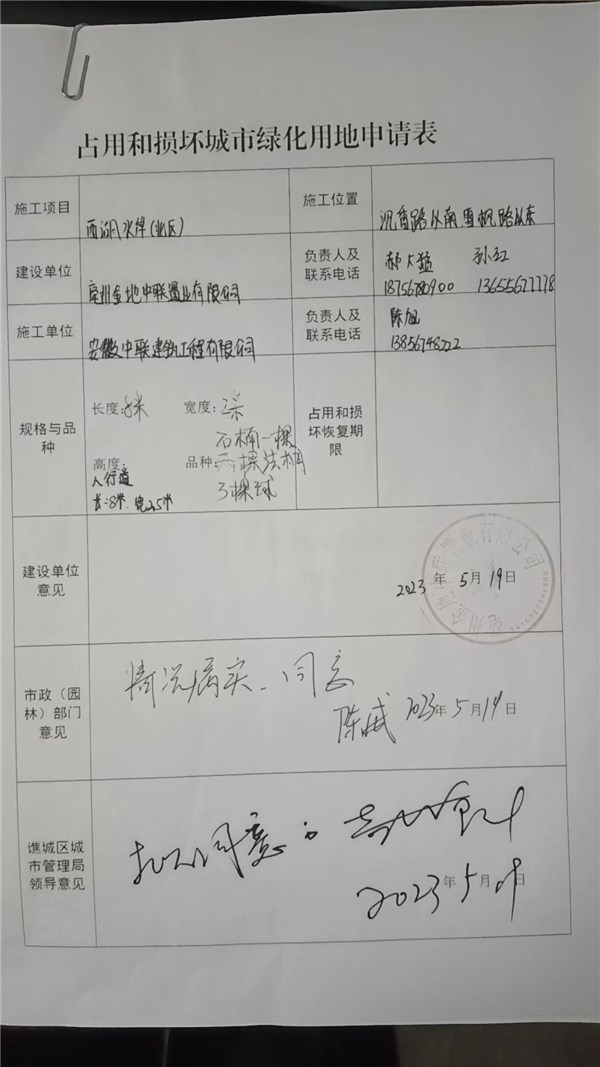 占用和损坏城市绿化用地申请表
施工项目
西湖水岸(北区)
施工位置
沉香路以南 雪枫路以东
建设单位
亳州金地中联置业有限公司
负责人及
联系电话
郝大猛 孙红
18756780900 13655677778
施工单位
安徽中联建筑工程有限公司
负责人及
联系电话
陈旭
13856748222
规格与品
种
长度:8米 宽度:2米
高度:
人行道
长:8米. 宽2.5米
品种:
石楠一棵
两棵法桐
3棵球
占用和损
坏恢复期
限
建设单位
意见
2023年5月19日
市政(园
林)部门
意见
情况属实、同意
陈威 2023年5月19日
谯城区城
市管理局
领导意见
拟同意
2023年5月19日